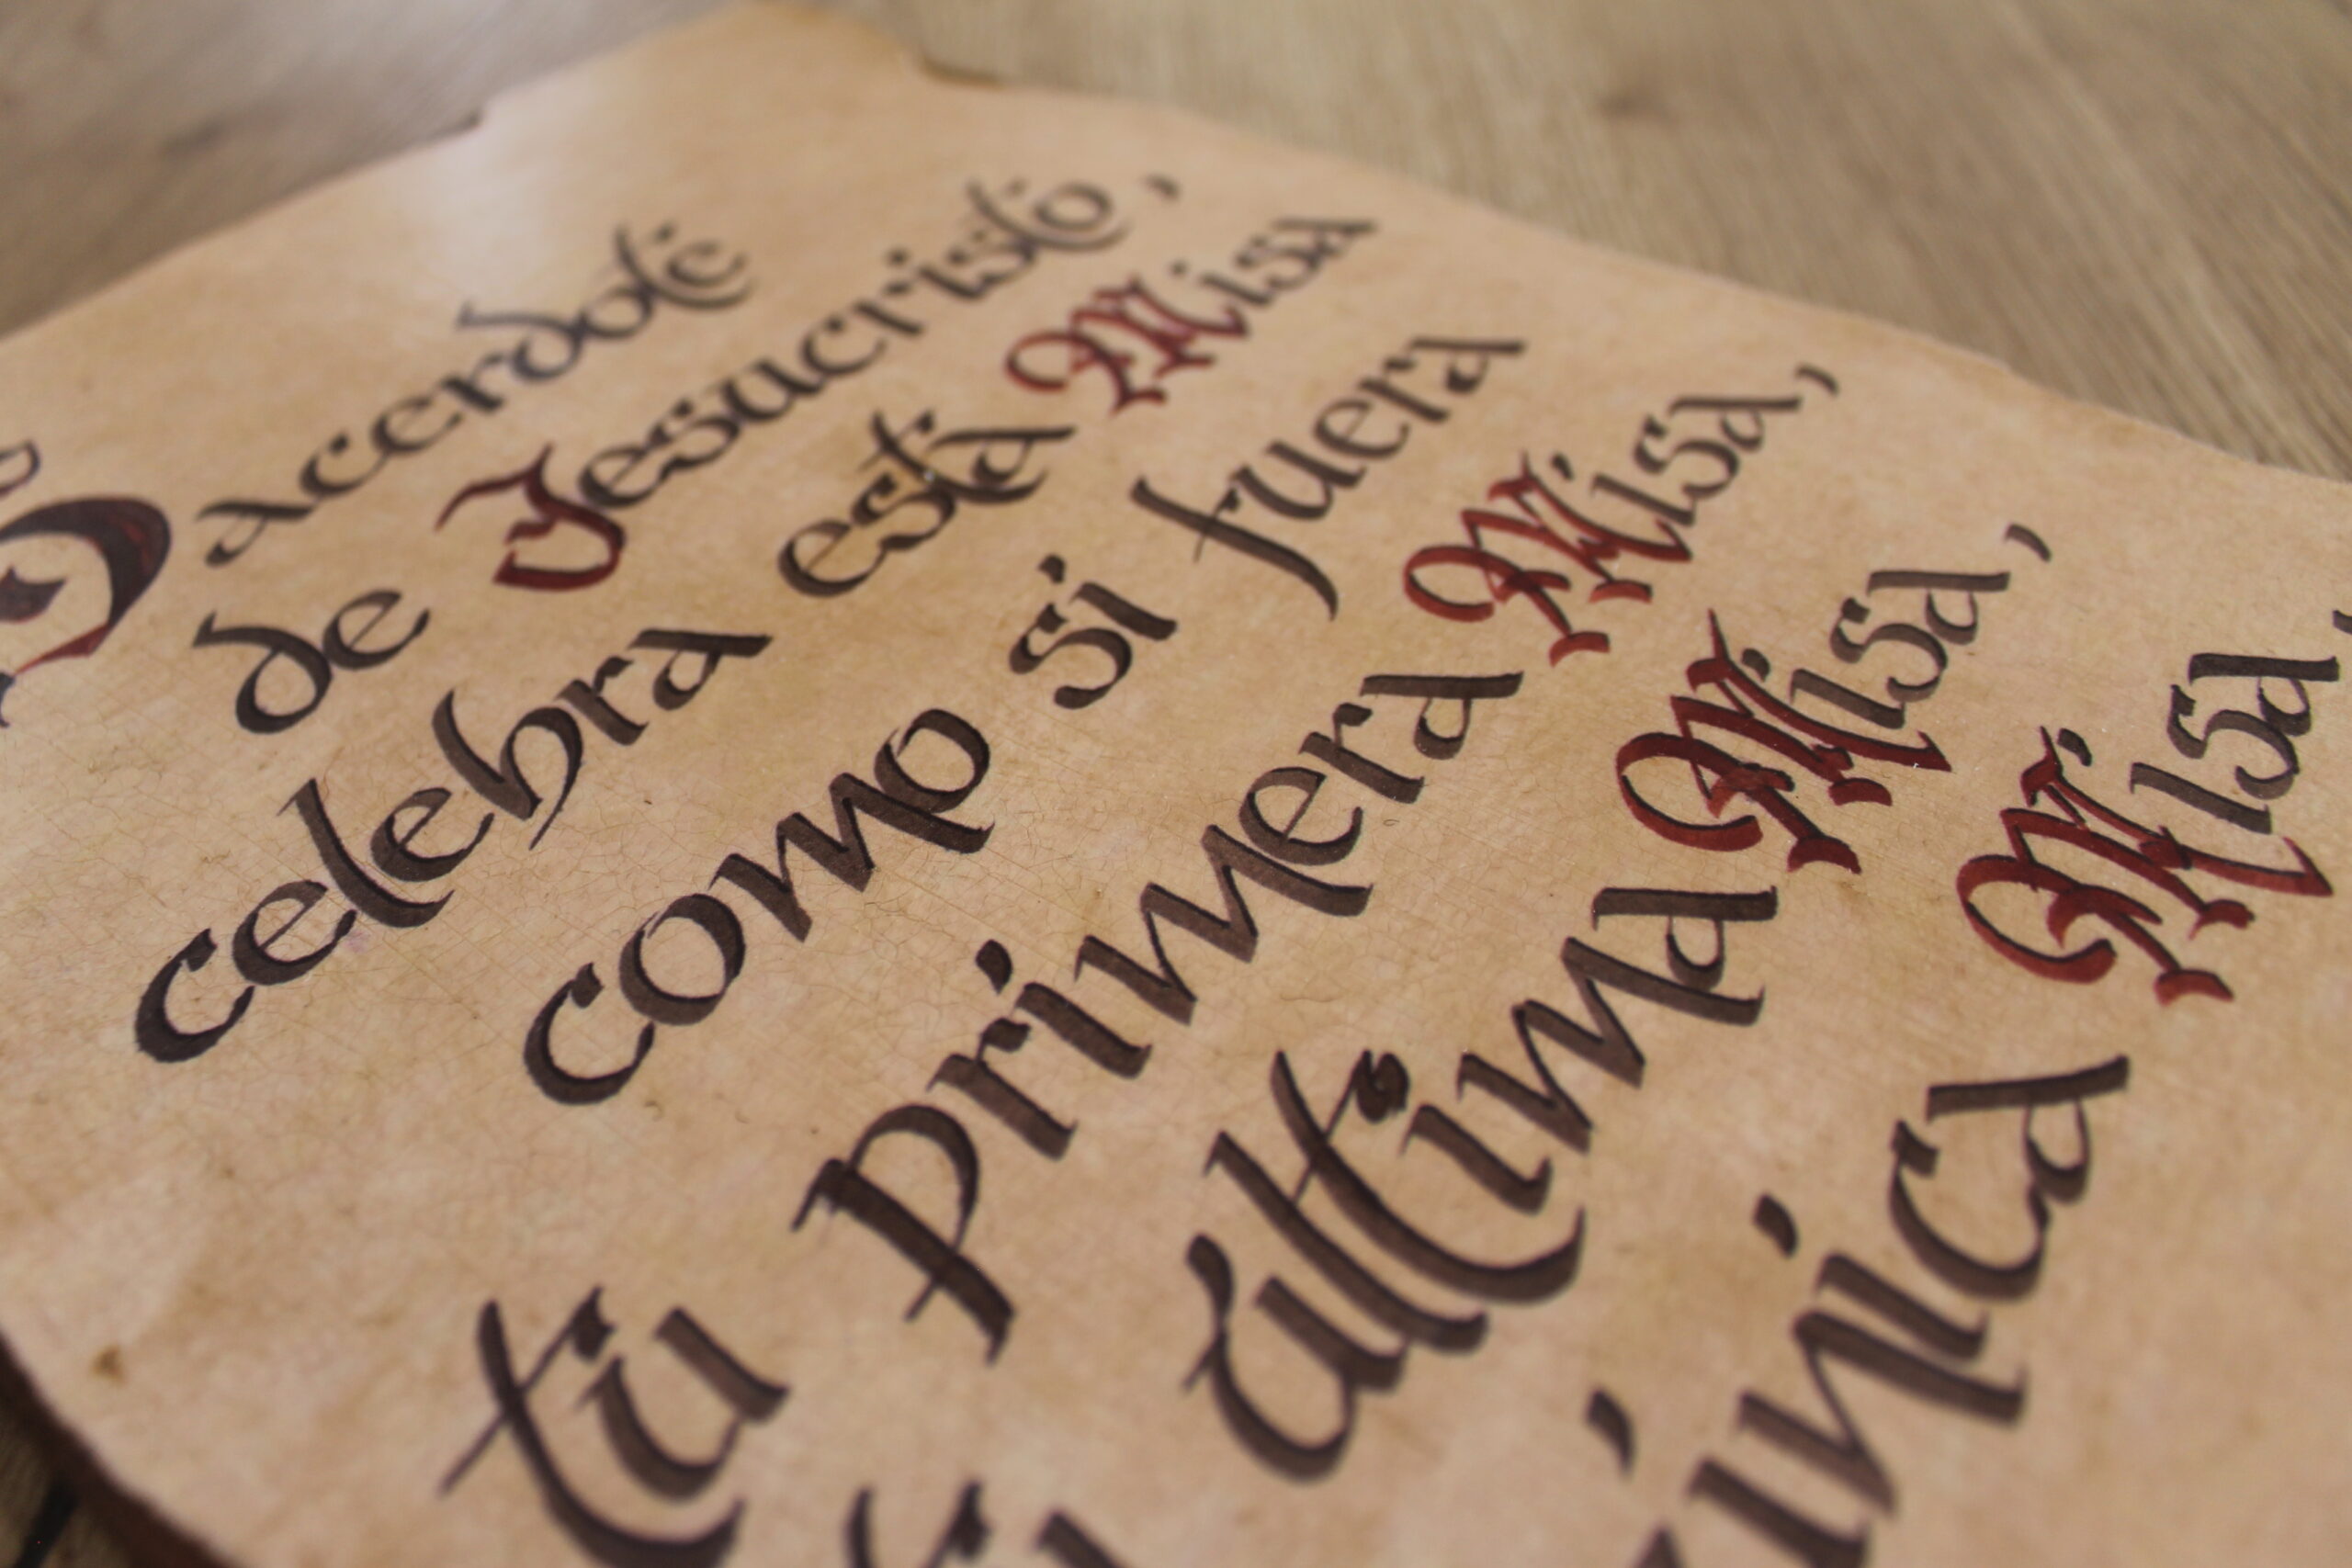 Sacerdote
de Jesucristo,
celebra esta Misa
como si fuera
tu primera Misa,
tu última Misa,
única Misa,